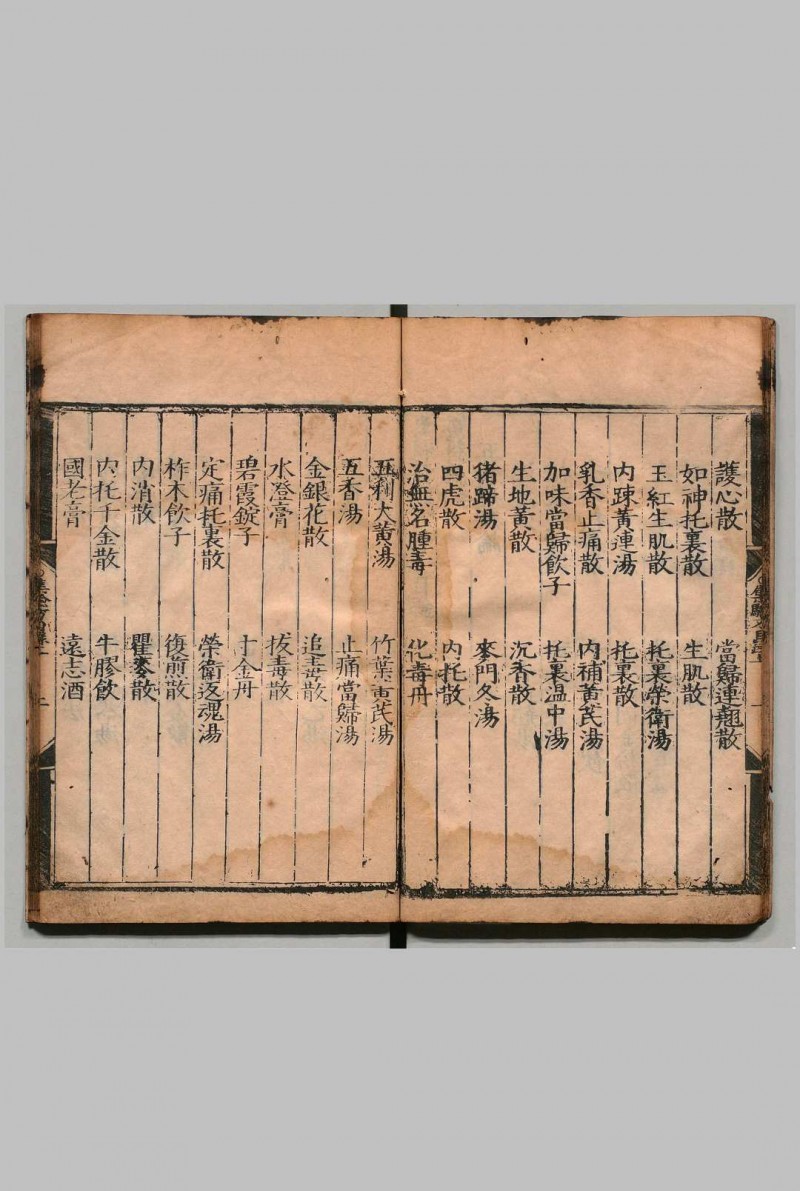 護心散 當歸連翹散
如神托裏散 生肌散
玉紅生肌散 托裏榮衛湯
内踈黃連湯 托裏散
乳香止痛散 内補黃芪湯
加味當歸飲子 托裏溫中湯
生地黃散 沉香散
猪蹄湯 麥門冬湯
四虎散 内托散
治無名腫毒 化毒丹
五利大黃湯 竹葉黃芪湯
五香湯 止痛當歸湯
金銀花散 追毒散
水澄膏 拔毒散
碧霞錠子 十金丹
定痛托裏散 榮衛返魂湯
柞木飲子 復煎散
内消散 瞿麥散
内托千金散 牛膠飲
國老膏 遠志酒